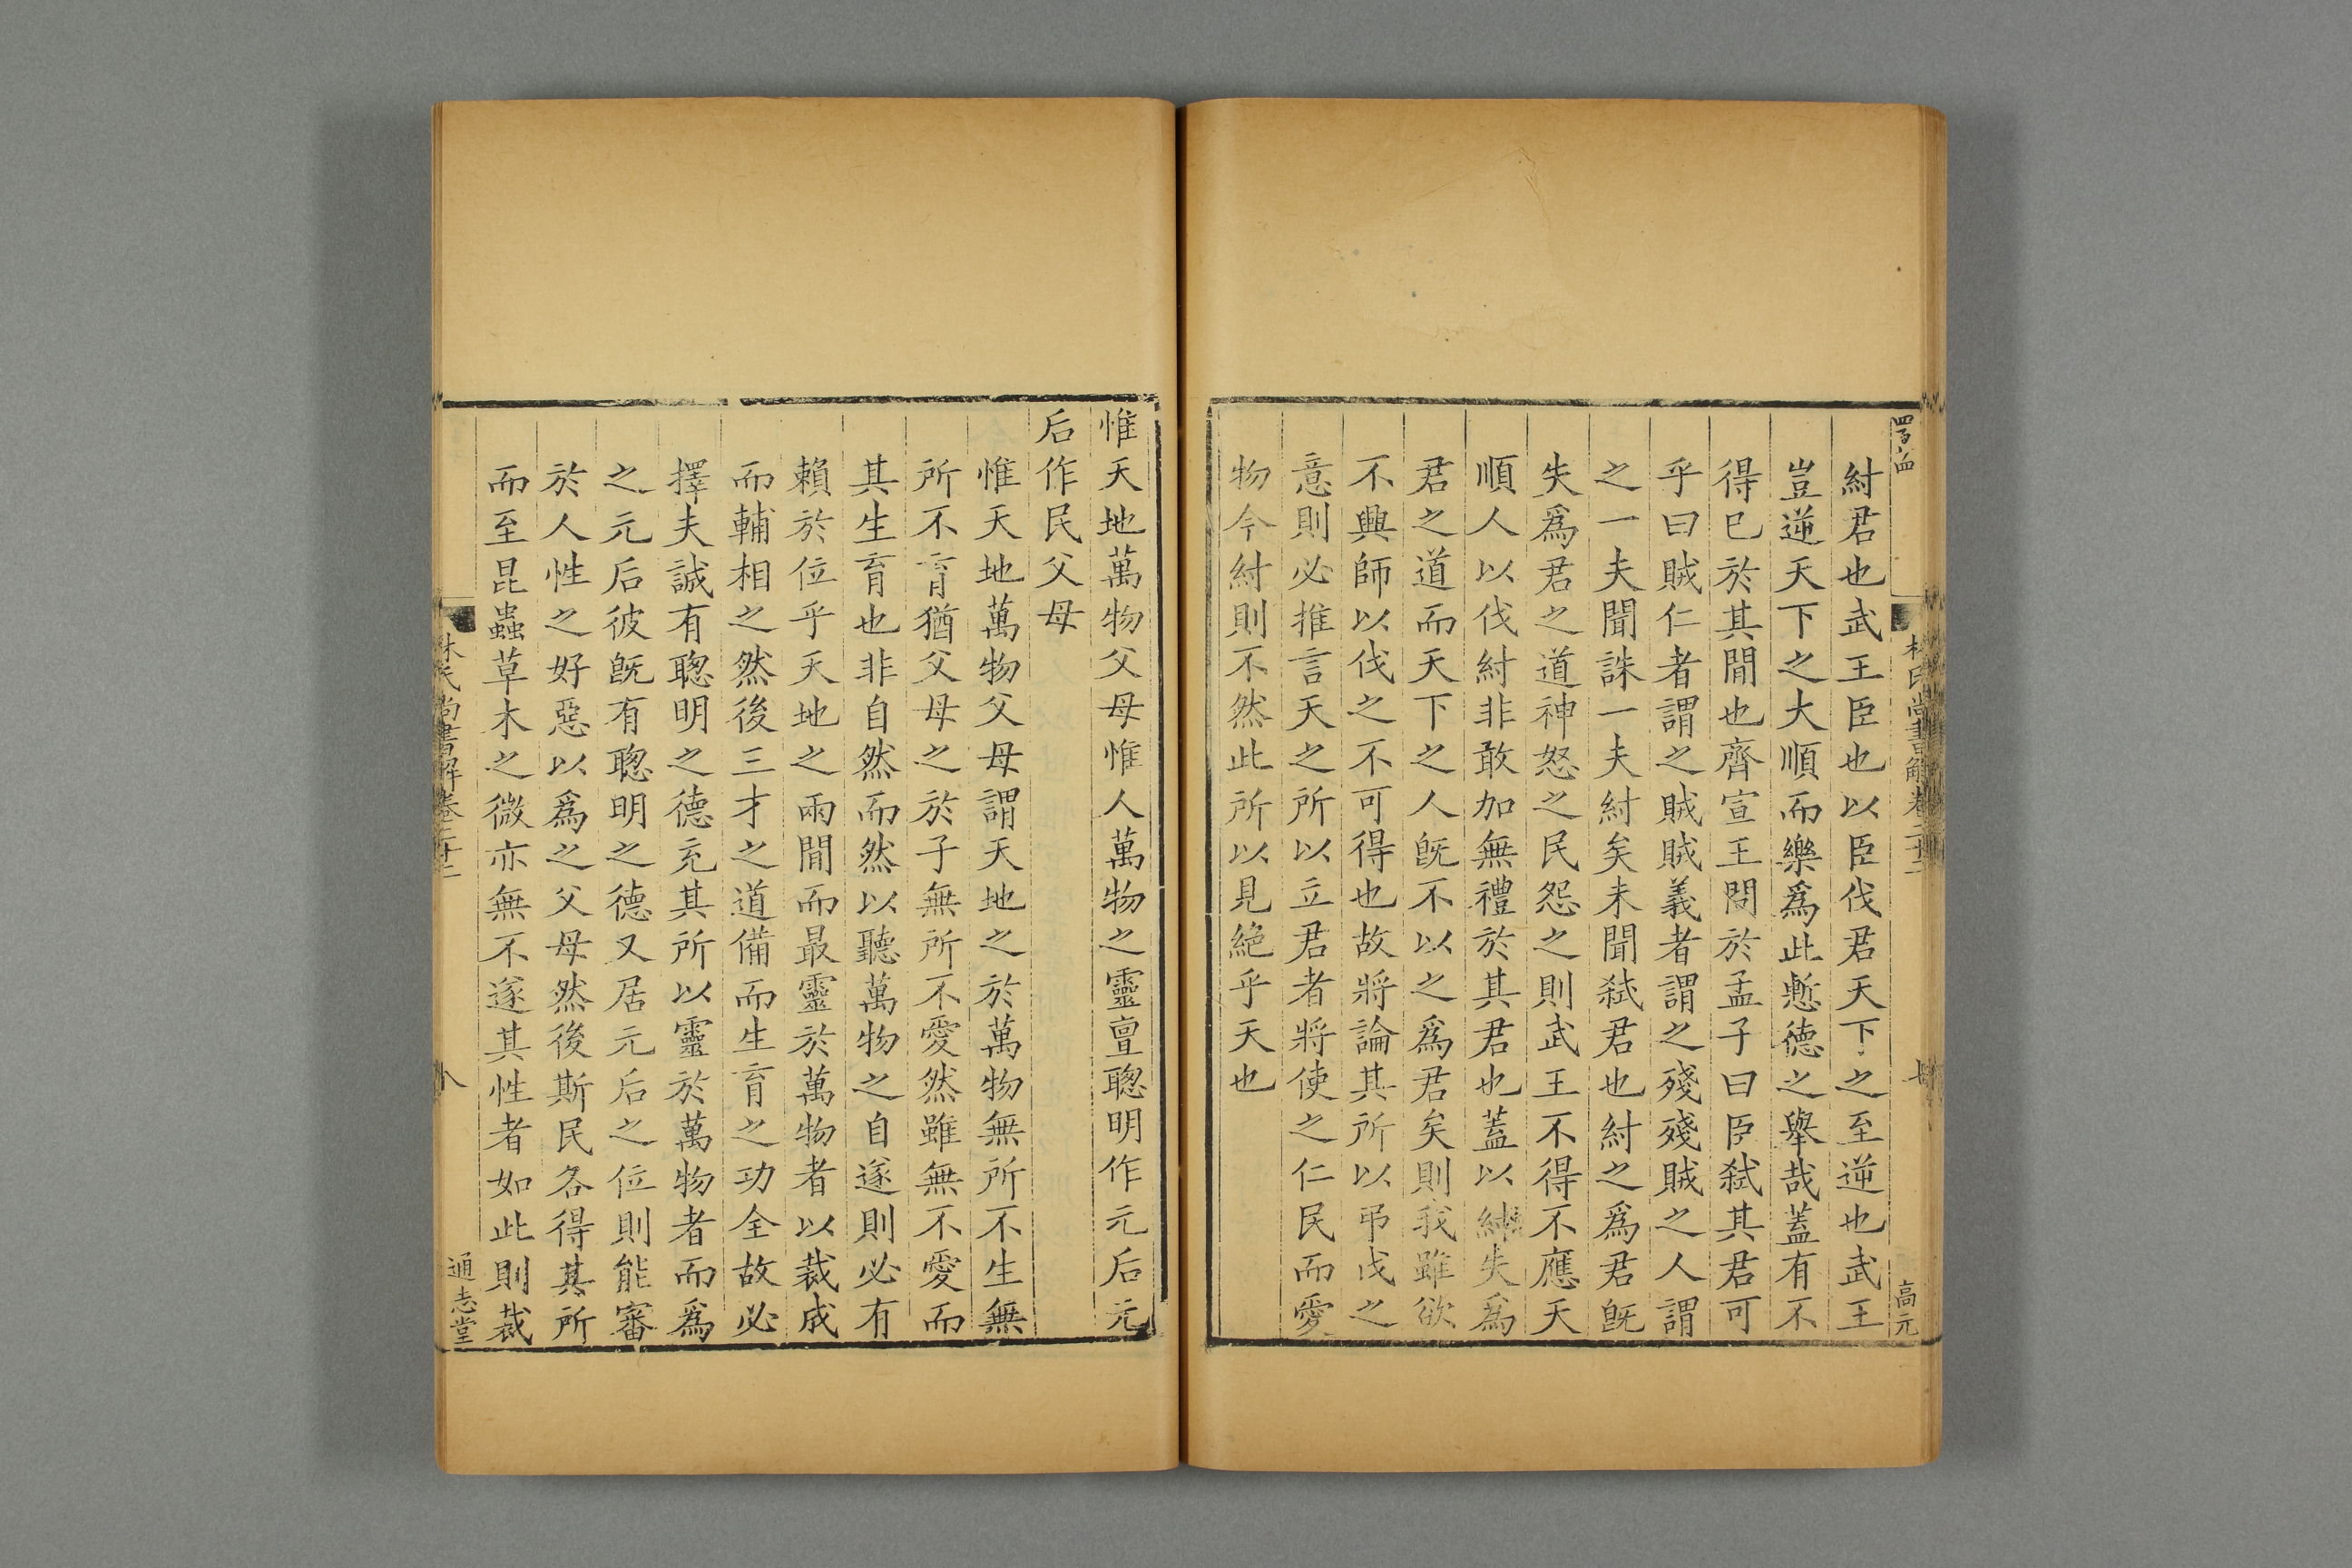 紂君也武王臣也以臣伐君天下之至逆也武王
豈逆天下之大順而樂爲此慙德之舉哉蓋有不
得已於其間也齊宣王問於孟子曰臣弑其君可
乎曰賊仁者謂之賊賊義者謂之殘殘賊之人謂
之一夫聞誅一夫紂矣未聞弑君也紂之爲君旣
失爲君之道神怒之民怨之則武王不得不應天
順人以伐紂非敢加無禮於其君也蓋以紂失爲
君之道而天下之人旣不以之爲君矣則我雖欲
不興師以伐之不可得也故將論其所以弔伐之
意則必推言天之所以立君者將使之仁民而愛
物今紂則不然此所以見絶乎天也
林氏尚書解卷二十二
高元
惟天地萬物父母惟人萬物之靈亶聰明作元后元
后作民父母
惟天地萬物父母謂天地之於萬物無所不生無
所不育猶父母之於子無所不愛然雖無不愛而
其生育也非自然而然以聽萬物之自遂則必有
賴於位乎天地之兩間而最靈於萬物者以裁成
而輔相之然後三才之道備而生育之功全故必
擇夫誠有聰明之德充其所以靈於萬物者而爲
之元后彼旣有聰明之德又居元后之位則能審
於人性之好惡以爲之父母然後斯民各得其所
而至昆蟲草木之微亦無不遂其性者如此則裁
林氏尚書解卷二十二
八
通志堂